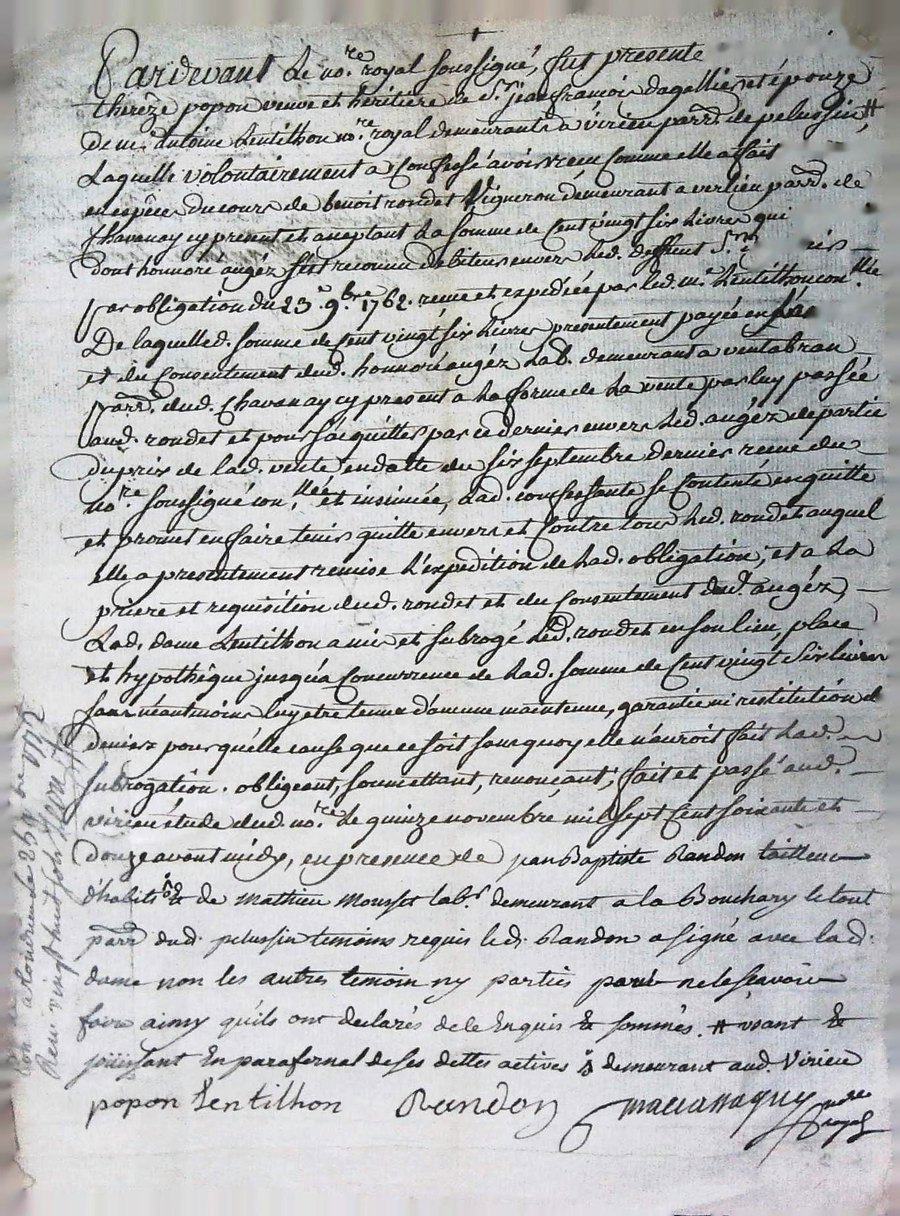 Pardevant Le no.re royal soussigné, fut presente
therèze popon veuve et héritiere de s.r jean francois dagallier et épouze
de me. Antoine Lentilhon no.re royal demeurants a virieu parr.e de pelussin #
Laquelle volontairement a Confessé avoir receu comme elle a fait
en espèces du cours de benoit rondet Vigneron demeurant a verlieu parr.e de
Chavanay cy present et acceptant La somme de Cent vingt six Livres qui
dont honnoré augéz s'est reconnu debiteur envers Led. deffunt S.r
par obligation du 23.e 9.bre 1762. receue et expediée par led. m.e Lentilhon con.llée
De laquelle d. somme de Cent vingt six Livres presentement payée
et du Consentement dud. honnoré augéz Lab. demeurant a ventabran
parr.e dud. Chavanay cy present a La forme de La vente par luy passée
aud. rondet et pour s'acquitter par ce dernier envers Led. augéz de partie
du prix de lad. vente en datte du six septembre dernier receue du
no.re soussigné con.llée et insinuée, Lad. confessante se Contente en quitte
et promet en faire tenir quitte envers et Contre tous Led. rondet auquel
elle a presentement remise L'expedition de Lad. obligation, et a La
priere et requisition dud. rondet et du Consentement dud. augéz,
Lad. dame Lentilhon a mis et subrogé Led. rondet en son lieu, place
et hypothêque jusqu'a Concurrence de Lad. somme de Cent vingt six livres
sans néantmoins luy etre tenue d'aucune maintenue, garantie ni restitution de
deniers pour quelle cause que ce soit sans quoy elle n'auroit fait Lad.
subrogation. obligeant, soumettant, renonçant, fait et passé aud.
virieu étude dud. no.re le quinze novembre mil sept Cent soixante et
Douze avant midy, en presence de jean Baptiste Randon tailleur
d'habits & de mathieu mousset lab.r demeurant a la Bouchary le tout
parr.e dud. pelussin temoins requis led. Randon a signé avec lad.
dame non les autres temoin ny parties pour ne le scavoir
faire ainsy qu'ils ont declarés de ce Enquis & sommés # usant &
jouissant En parafernal de ses dettes actives & demeurant aud. Virieu
popon Lentilhon Randon
royal
Con.lé a Condrieu le 25 9.bre 1772
Receu vingt huit sols